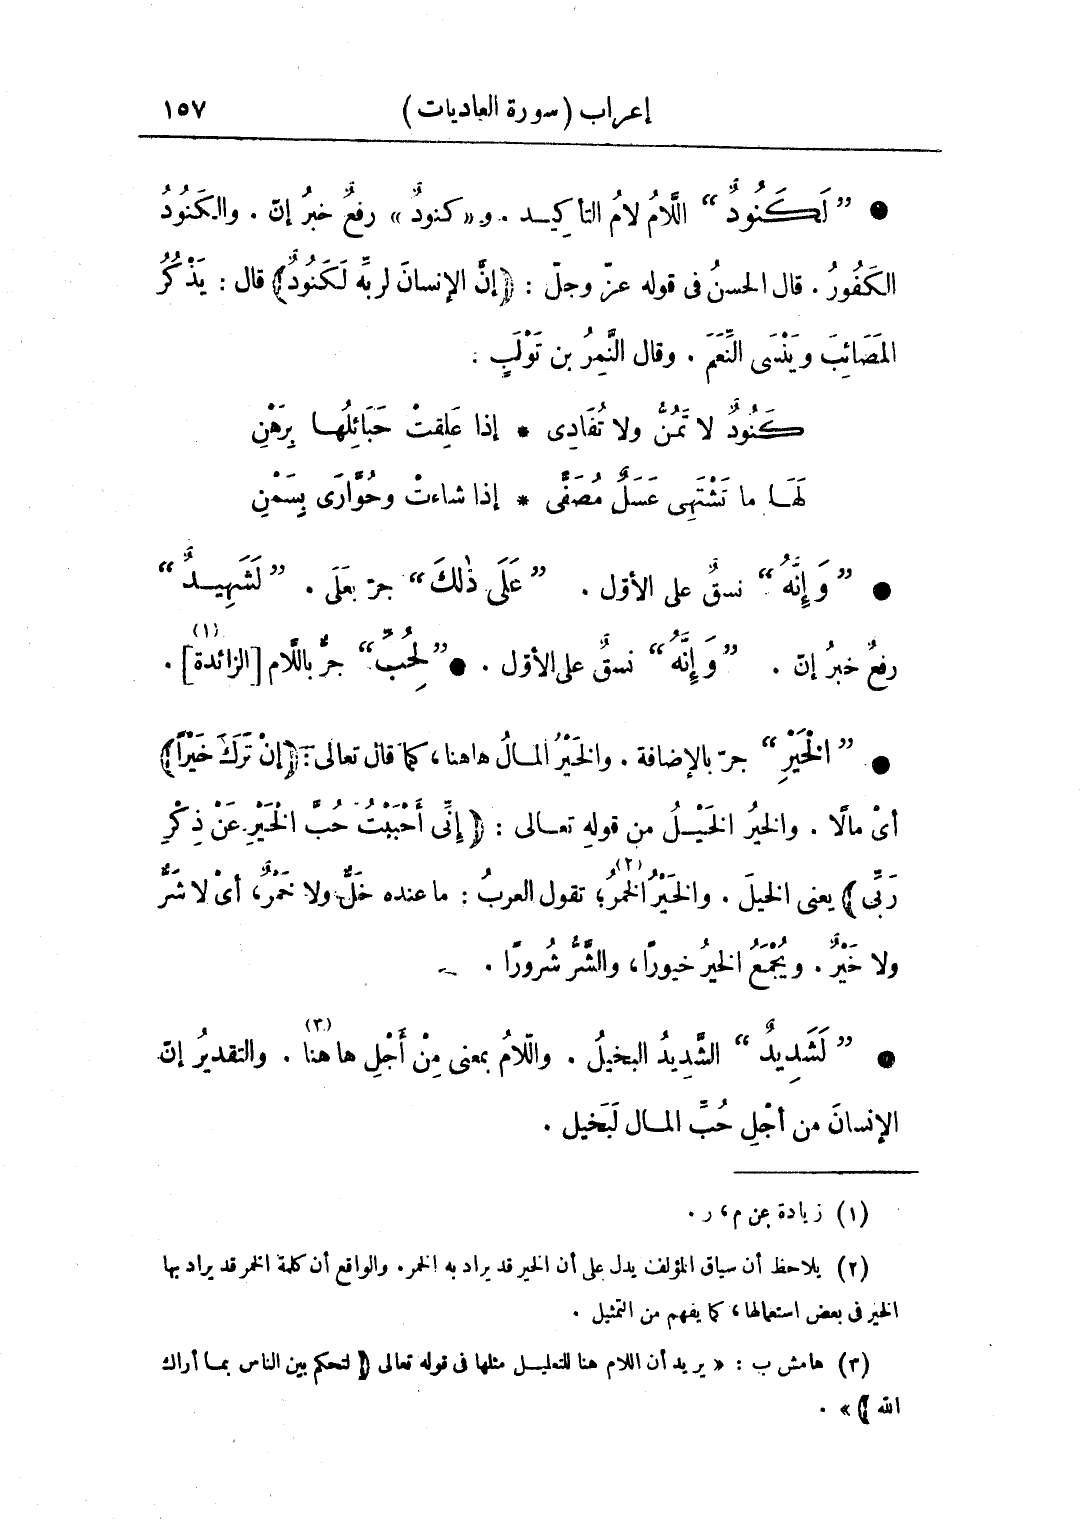 إعراب (سورة العاديات) ١٥٧
● ”لَكَنُودٌ“ اللَّامُ لامُ التأكيد . و«كنودٌ» رفعٌ خبرُ إنّ . والكَنُودُ
الكَفُورُ . قال الحسنُ فى قوله عزّ وجلّ : ﴿إنَّ الإنسانَ لربِّه لَكَنُودٌ﴾ قال : يَذْكُرُ
المَصَائِبَ ويَنْسَى النِّعَمَ . وقال النَّمِرُ بن تَوْلَبٍ :
كَنُودٌ لا تَمُنُّ ولا تُفَادِى * إذا عَلِقتْ حَبَائِلُها بِرَهْنِ
لَهَا ما تَشْتَهِى عَسَلٌ مُصَفًّى * إذا شاءتْ وحُوَّارَى بِسَمْنِ
● ”وَإِنَّهُ“ نسقٌ على الأوّل . ”عَلَى ذٰلكَ“ جرّ بعَلَى . ”لَشَهِيدٌ“
رفعٌ خبرُ إنّ . ”وَإِنَّهُ“ نسقٌ على الأوّل . ● ”لِحُبِّ“ جرٌّ باللَّام [الزائدة](١) .
● ”الخَيْرِ“ جرّ بالإضافة . والخَيْرُ المالُ هاهنا، كما قال تعالى : ﴿إنْ تَرَكَ خَيْرًا﴾
أىْ مالًا . والخيرُ الخَيْلُ من قولهِ تعالى : ﴿إِنِّى أَحْبَبْتُ حُبَّ الخَيْرِ عَنْ ذِكْرِ
رَبِّى﴾ يعنى الخيلَ . والخَيْرُ الخمرُ(٢)؛ تقول العربُ : ماعنده خَلٌّ ولا خَمْرٌ، أىْ لا شَرٌّ
ولا خَيْرٌ . ويُجْمَعُ الخيرُ خيورًا، والشَّرُّ شُرورًا .
● ”لَشَدِيدٌ“ الشَّدِيدُ البخيلُ . واللّامُ بمعنى مِنْ أَجْلِ هاهنا(٣) . والتقديرُ إنّ
الإنسانَ من أجْلِ حُبِّ المال لَبَخيل .
(١) زيادة عن م، ر .
(٢) يلاحظ أن سياق المؤلف يدل على أن الخير قد يراد به الخمر. والواقع أن كلمة الخمر قد يراد بها
الخير فى بعض استعمالها، كما يفهم من التمثيل .
(٣) هامش ب : « يريد أن اللام هنا للتعليل مثلها فى قوله تعالى ﴿ لتحكم بين الناس بما أراك
الله ﴾ » .